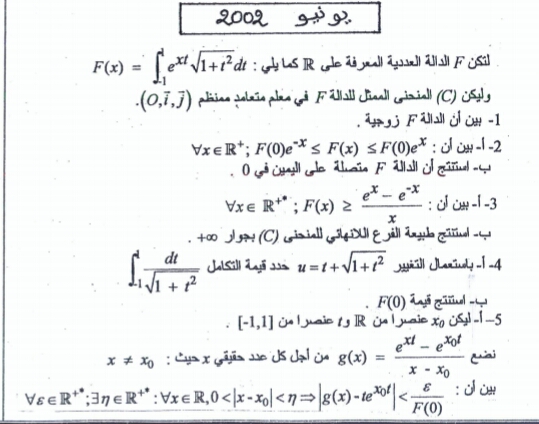 يونيو 2002
لتكن F الدالة العددية المعرفة على ℝ كما يلي : F(x) = ∫₋₁¹ eˣᵗ √(1+t²) dt
وليكن (C) المنحنى الممثل للدالة F في معلم متعامد ممنظم (O,i⃗,j⃗).
1- بين أن الدالة F زوجية .
2-أ- بين أن : ∀x∈ℝ⁺; F(0)e⁻ˣ ≤ F(x) ≤ F(0)eˣ
ب- استنتج أن الدالة F متصلة على اليمين في 0 .
3-أ-بين أن : ∀x∈ ℝ⁺* ; F(x) ≥ (eˣ − e⁻ˣ)/x
ب- استنتج طبيعة الفرع اللانهائي للمنحنى (C) بجوار +∞.
4-أ- باستعمال التغيير u = t+√(1+t²) حدد قيمة التكامل ∫₋₁¹ dt/√(1 + t²)
ب- استنتج قيمة F(0) .
5-أ-ليكن x₀ عنصرا من ℝ و t عنصرا من [-1,1] .
نضع g(x) = (eˣᵗ − e^(x₀t))/(x - x₀) من أجل كل عدد حقيقي x حيث : x ≠ x₀
بين أن : ∀ε∈ℝ⁺*;∃η∈ℝ⁺* : ∀x∈ℝ, 0<|x-x₀|<η ⇒ |g(x)-te^(x₀t)| < ε/F(0)